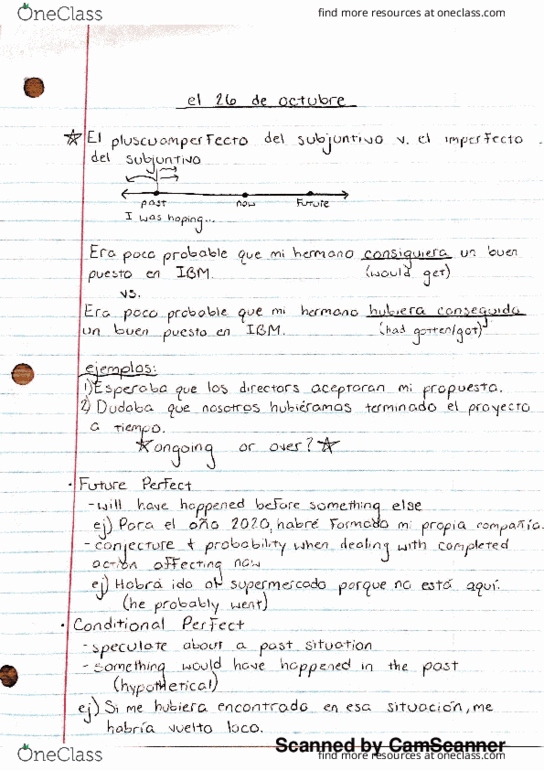 OneClass
find more resources at oneclass.com
el 26 de octubre
☆ El pluscuamperfecto del subjuntivo v. el imperfecto
del subjuntivo
past now future
I was hoping...
Era poco probable que mi hermano consiguiera un buen
puesto en IBM. (would get)
vs.
Era poco probable que mi hermano hubiera conseguido
un buen puesto en IBM. (had gotten/got)
ejemplos:
1) Esperaba que los directors aceptaran mi propuesta.
2) Dudaba que nosotros hubiéramos terminado el proyecto
a tiempo.
☆ ongoing or over? ☆
· Future Perfect
- will have happened before something else
ej) Para el año 2020, habré formado mi propia compañía.
- conjecture + probability when dealing with completed
action affecting now
ej) Habrá ido al supermercado porque no está aquí.
(he probably went)
· Conditional Perfect
- speculate about a past situation
- something would have happened in the past
(hypothetical)
ej) Si me hubiera encontrado en esa situación, me
habría vuelto loco.
Scanned by CamScanner
OneClass
find more resources at oneclass.com